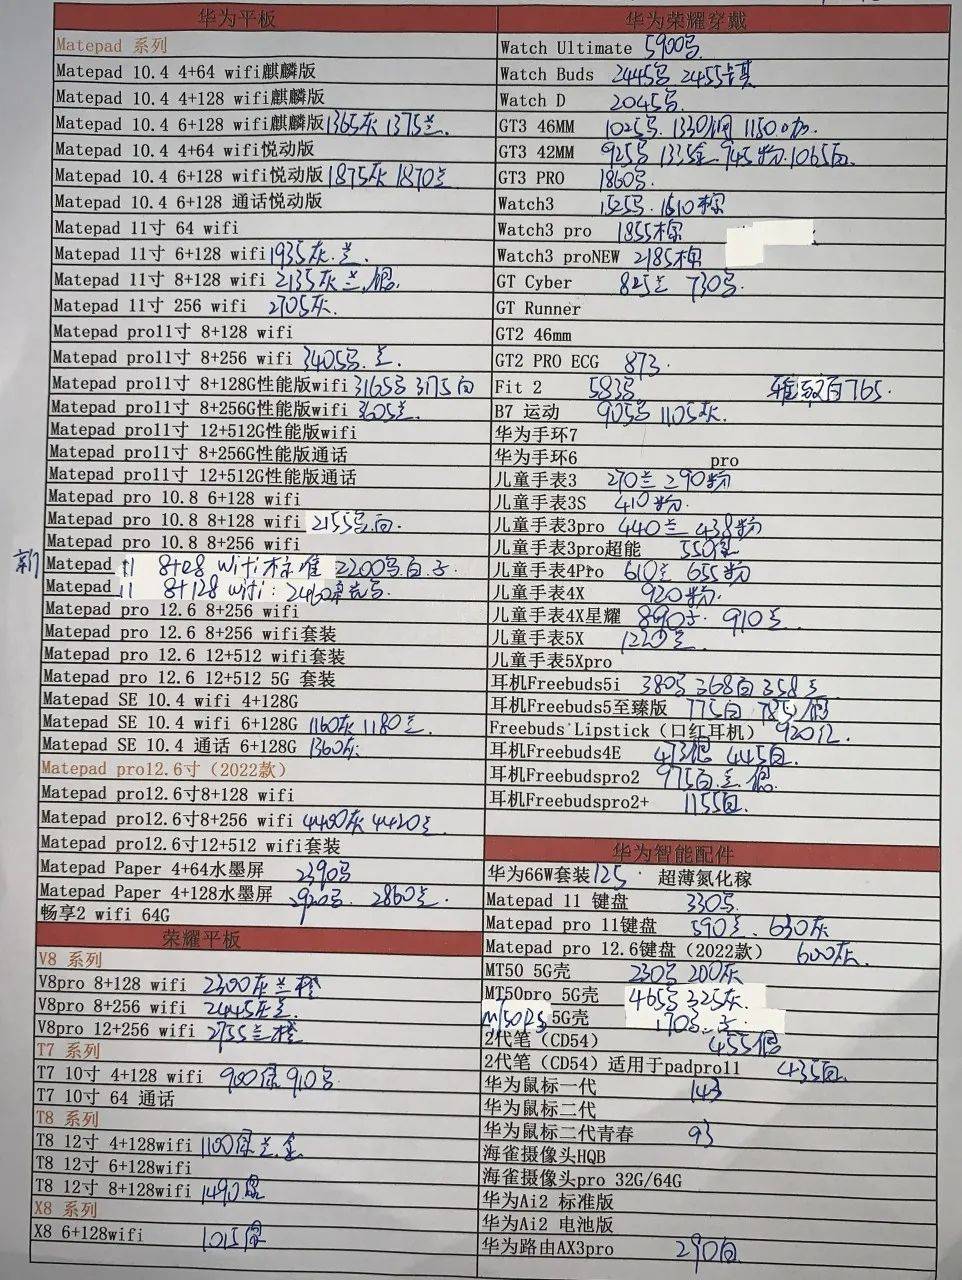 华为平板
Matepad 系列
Matepad 10.4 4+64 wifi麒麟版
Matepad 10.4 4+128 wifi麒麟版
Matepad 10.4 6+128 wifi麒麟版 1365灰 1375兰.
Matepad 10.4 4+64 wifi悦动版
Matepad 10.4 6+128 wifi悦动版 1875灰 1870兰
Matepad 10.4 6+128 通话悦动版
Matepad 11寸 64 wifi
Matepad 11寸 6+128 wifi 1935灰.兰.
Matepad 11寸 8+128 wifi 2135灰兰.银
Matepad 11寸 256 wifi 2705灰.
Matepad pro11寸 8+128 wifi
Matepad pro11寸 8+256 wifi 3405号.兰.
Matepad pro11寸 8+128G性能版wifi 3165号 3175白
Matepad pro11寸 8+256G性能版wifi 3605兰.
Matepad pro11寸 12+512G性能版wifi
Matepad pro11寸 8+256G性能版通话
Matepad pro11寸 12+512G性能版通话
Matepad pro 10.8 6+128 wifi
Matepad pro 10.8 8+128 wifi 2155号白.
Matepad pro 10.8 8+256 wifi
新 Matepad 11 8+128 wifi标准 2200号白.
Matepad 11 8+128 wifi: 2460
Matepad pro 12.6 8+256 wifi
Matepad pro 12.6 8+256 wifi套装
Matepad pro 12.6 12+512 wifi套装
Matepad pro 12.6 12+512 5G 套装
Matepad SE 10.4 wifi 4+128G
Matepad SE 10.4 wifi 6+128G 1160灰 1180兰.
Matepad SE 10.4 通话 6+128G 1360灰
Matepad pro12.6寸(2022款)
Matepad pro12.6寸8+128 wifi
Matepad pro12.6寸8+256 wifi 4400灰 4420兰.
Matepad pro12.6寸12+512 wifi套装
Matepad Paper 4+64水墨屏 2390号
Matepad Paper 4+128水墨屏 2920号. 2860兰.
畅享2 wifi 64G
荣耀平板
V8 系列
V8pro 8+128 wifi 2300灰兰橙
V8pro 8+256 wifi 2445灰兰.
V8pro 12+256 wifi 2755兰橙
T7 系列
T7 10寸 4+128 wifi 900绿 910号.
T7 10寸 64 通话
T8 系列
T8 12寸 4+128wifi 1100绿兰.金
T8 12寸 6+128wifi
T8 12寸 8+128wifi 1490
X8 系列
X8 6+128wifi 1015绿
华为荣耀穿戴
Watch Ultimate 5900号
Watch Buds 2445号 2455卡其
Watch D 2045号.
GT3 46MM 1025号. 1330钢 1150
GT3 42MM 925号 1335金 945粉.1065白.
GT3 PRO 1860号.
Watch3 1525号.1610棕
Watch3 pro 1855棕
Watch3 proNEW 2185棕
GT Cyber 825兰 730号.
GT Runner
GT2 46mm
GT2 PRO ECG 873.
Fit 2 583号 雅致白765.
B7 运动 905号 1105灰.
华为手环7
华为手环6 pro
儿童手表3 270兰 290粉
儿童手表3S 410粉.
儿童手表3pro 440兰 438粉
儿童手表3pro超能 550
儿童手表4Pro 610兰 655粉
儿童手表4X 920粉.
儿童手表4X星耀 890 910兰.
儿童手表5X 1220兰.
儿童手表5Xpro
耳机Freebuds5i 380号 368白 358兰
耳机Freebuds5至臻版 775白 785银
Freebuds Lipstick(口红耳机) 920红.
耳机Freebuds4E 473银 445白.
耳机Freebudspro2 975白.兰.银.
耳机Freebudspro2+ 1155白.
华为智能配件
华为66W套装 125 超薄氮化稼
Matepad 11 键盘 330号.
Matepad pro 11键盘 590兰. 630灰
Matepad pro 12.6键盘(2022款) 600灰.
MT50 5G壳 230号 200灰
MT50pro 5G壳 465号 325灰.
MT50RS 5G壳 170号.
2代笔(CD54) 455银
2代笔(CD54)适用于padpro11 435白.
华为鼠标一代 143
华为鼠标二代
华为鼠标二代青春 93
海雀摄像头HQB
海雀摄像头pro 32G/64G
华为Ai2 标准版
华为Ai2 电池版
华为路由AX3pro 290白